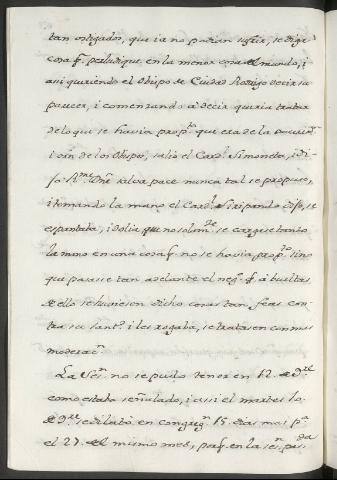 tan ostigados, que ia no podian sufrir, se diga
cosa q̃ perjudique en la menor cosa del mundo, i
asi queriendo el Obispo de Ciudad Rodrigo decir su
parecer, i comenzando a decir queria tratar
de lo que se havia prop.to que era de la
i orn de los Obispos, salio el Card.l Simoneta, i di-
jo R.me Dñe salva pace nunca tal se propuso,
i tomando la mano el Card.l Siripando dijo, se
espantaba, i dolia que no solam.te se cargase tando
la mano en una cosa q̃ no se havia prop.to sino
que pasase tan adelante el neg.o q̃ a bueltas
de ello se huviesen dicho cosas tan feas con-
tra su Sant.d i les rogaba, se tratasen con mas
moderac.n
La Ses.n no se pudo tener en 12 de 9.re
como estaba señalado, i assi el martes 10
de 9.re se dilató en congreg.n 15 dias mas p.a
el 27 del mismo mes, porq̃ en la ses.n pas.da